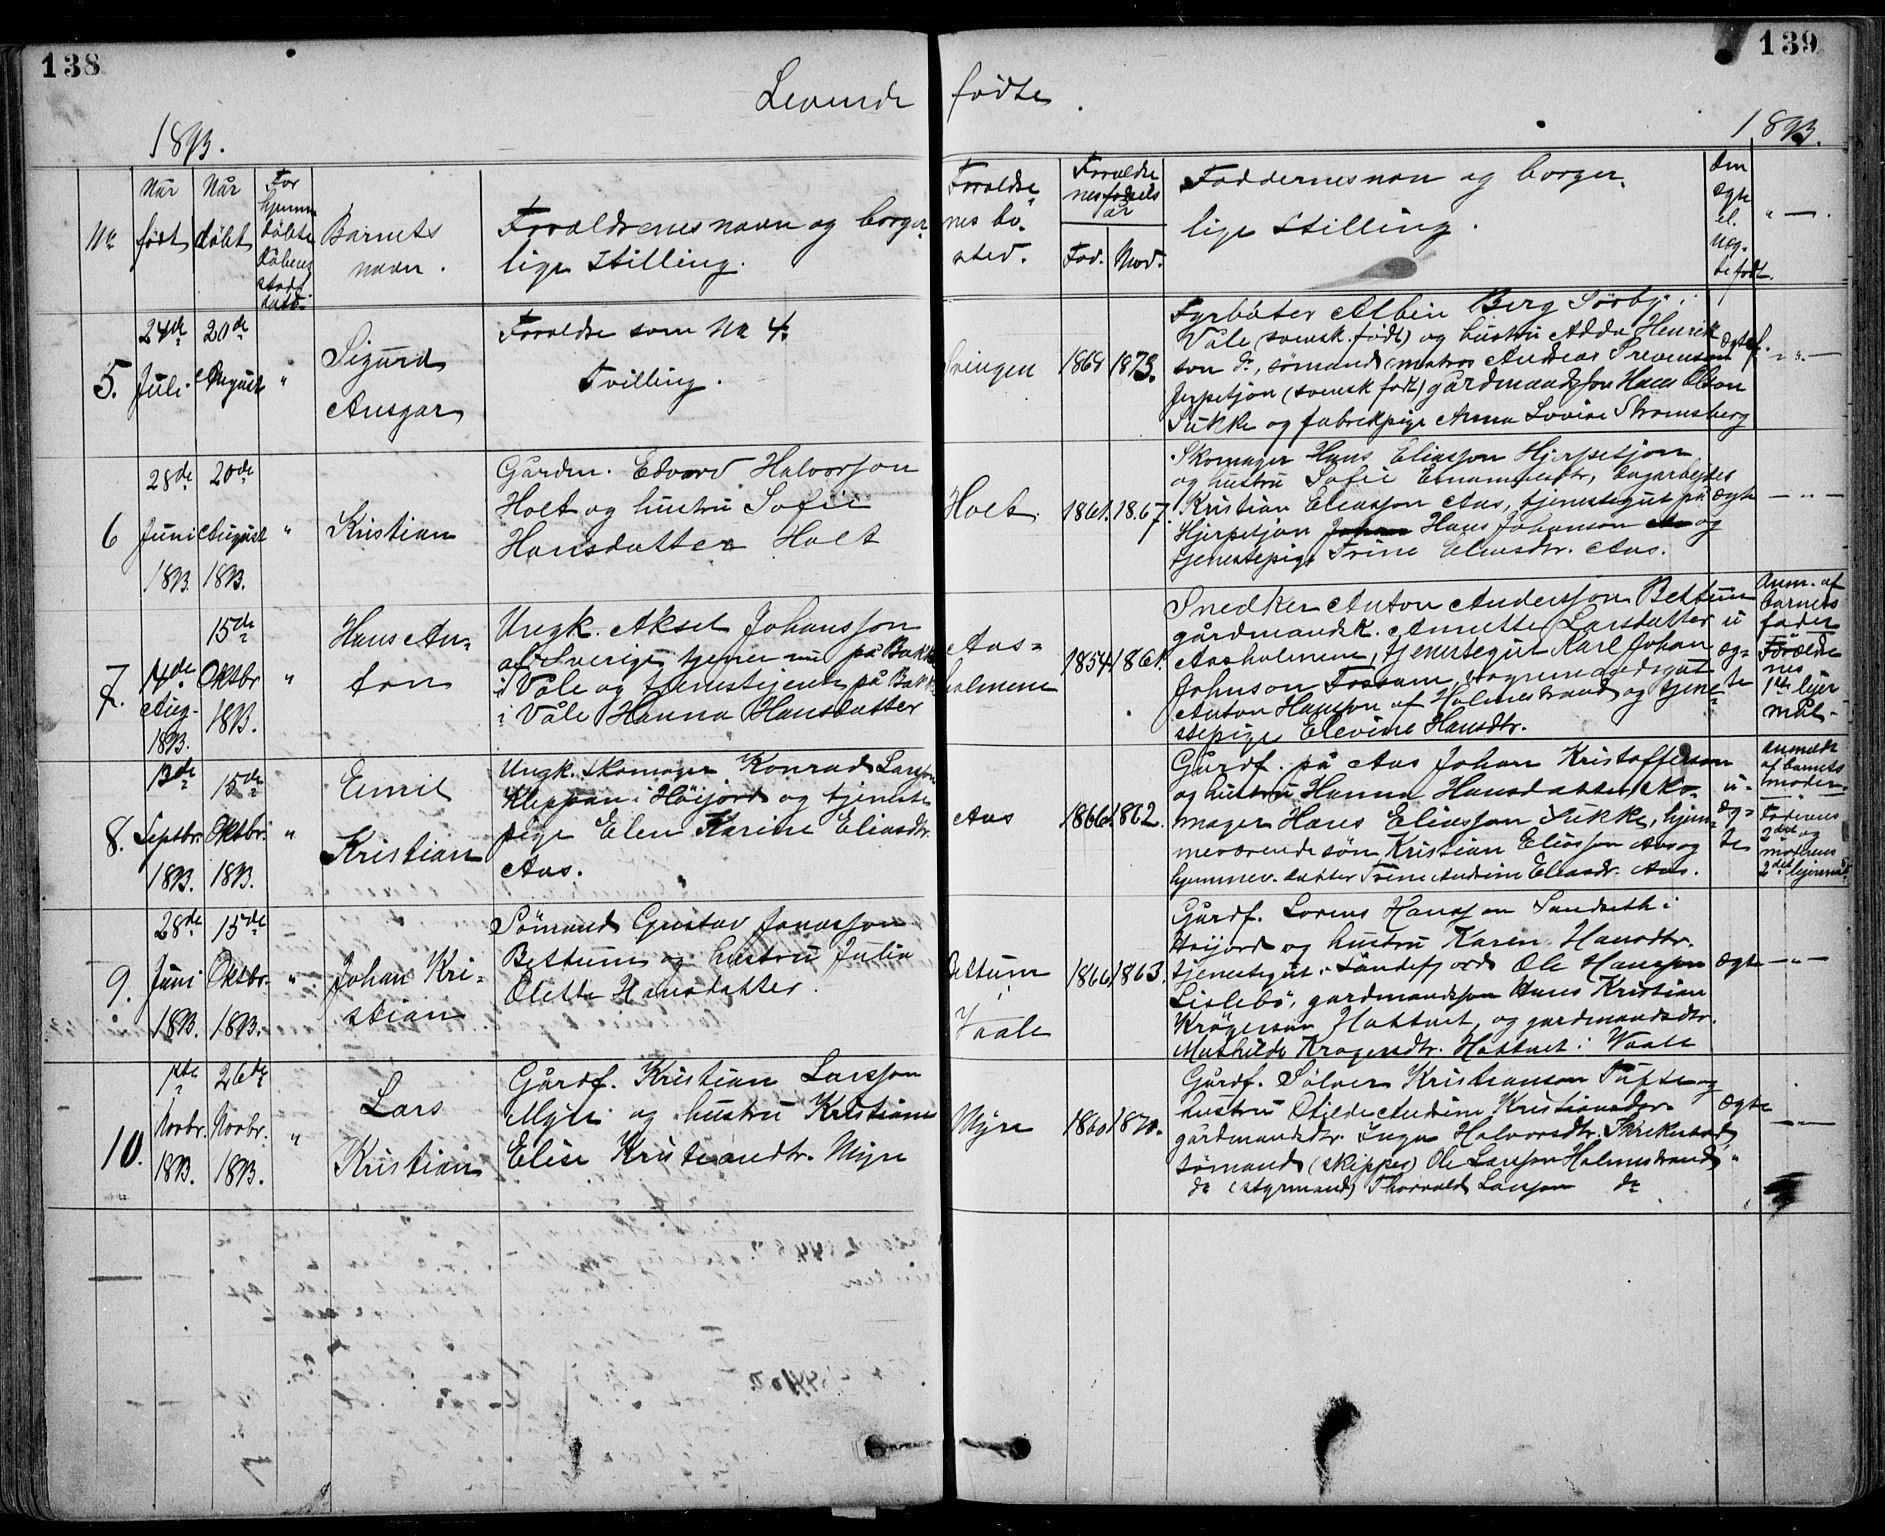 138
139
Levende fødte.
1893.
1893.
No
Når født
Når døbt
For hjemmedøbte dåbens stadf.
Barnets navn.
Forældrenes navn og borgerlige Stilling.
Forældrenes bosted.
Forældrenes fødselsår
Fad. Mod.
Faddernes navn og borgerlige Stilling.
Om egte el. uegtefødt.
" —
5.
24de Juli
20de August
"
Sigurd
Ansgar
Forældre som No 4.
Tvilling.
1868 1873.
Fyrbøter Albin Berg Sörby i
Våle (svensk født) og hustru Adda Henrik
son do, sömand (matros) Andreas
(svensk født) gårdmandssøn Hans Olson
Sukke og fabrikpige Anna Lovise Stromsberg
Ægtef.
— " —
6
28de Juni 1893.
20de August 1893.
"
Kristian
Gårdm. Edvard Halvorson
Holt og hustru Sofie
Hansdatter Holt
Holt
1861. 1867.
Skomager Hans Eliasson Hjerpetjøn
og hustru Sofie
Kristian Eliasson Aas, tjenestegut på
Hjerpetjøn Johan Hans Johanson Aas og
tjenestepige Trine Eliasdtr. Aas.
Ægte
— " —
7.
14de Aug. 1893.
15de Oktbr 1893.
"
Hans An-
ton
Ungk. Aksel Johansson
af Sverige, tjener nu på Bakke
i Våle og tjenestejente på Bakke
i Våle Hanna Hansdatter
Aas-
holmene
1854. 1861.
Snedker Anton Andersson Bettum
gårdmandsk. Anette Larsdatter
Aasholmene, tjenestegut Karl Johan
Johnson Fossum, vognmandsgut
Anton Hanson af Holmestrand og tjene-
stepige Elevine Hansdtr.
u
æg-
te
Anm. af
barnets
fader
Foreldre
nes
1ste lejer
mål.
8.
13de Septbr. 1893.
15de Oktbr. 1893.
"
Emil
Kristian
Ungk. Skomager Konrad Larsson
Kleppan i Höijord og tjeneste
pige Elen Karine Eliasdtr.
Aas.
Aas
1866. 1862.
Gårdf. på Aas Johan Kristofferson
og hustru Hanna Hansdatter, sko-
mager Hans Eliasson Sukke, hjem-
meværende sön Kristian Eliasson Aas og
hjemmev. datter Trine Andrine Eliasdr. Aas.
u-
æg-
te
Anmeldt
af barnets
moder.
Faderens
2det og
moderens
2det lejermål
9.
28de Juni 1893.
15de Oktbr. 1893.
"
Johan Kri-
stian
Sömand Gustav Jonasson
Bettum og hustru Julia
Olette Hansdatter.
Bettum
Vaale
1866. 1863.
Gårdf. Lorens Hansson Sandseth i
Høijord og hustru Karen Hansdtr.
tjenestegut i Sandefjord Ole Hansson
Lislebö, gardmandssøn Hans Kristian
Krögerson Hattvet, og gardmandsdtr.
Mathilde Krogersdtr. Hattvet i Vaale
Ægte
— " —
10.
1ste Novbr. 1893.
26de Novbr. 1893.
"
Lars
Kristian
Gårdf. Kristian Larsson
Myre og hustru Kristiane
Elise Kristiandtr. Myre
Myre
1860. 1870.
Gårdf. Sölver Kristianson Tufte og
hustru Otilde Andrine Kristiansdtr.
gårdmandsdtr. Inga Halvorsdtr. Skrikestad
sömand (skipper) Ole Larsson Holmestrand
do (styrmand) Thorvald Larsson do
Ægte
— " —